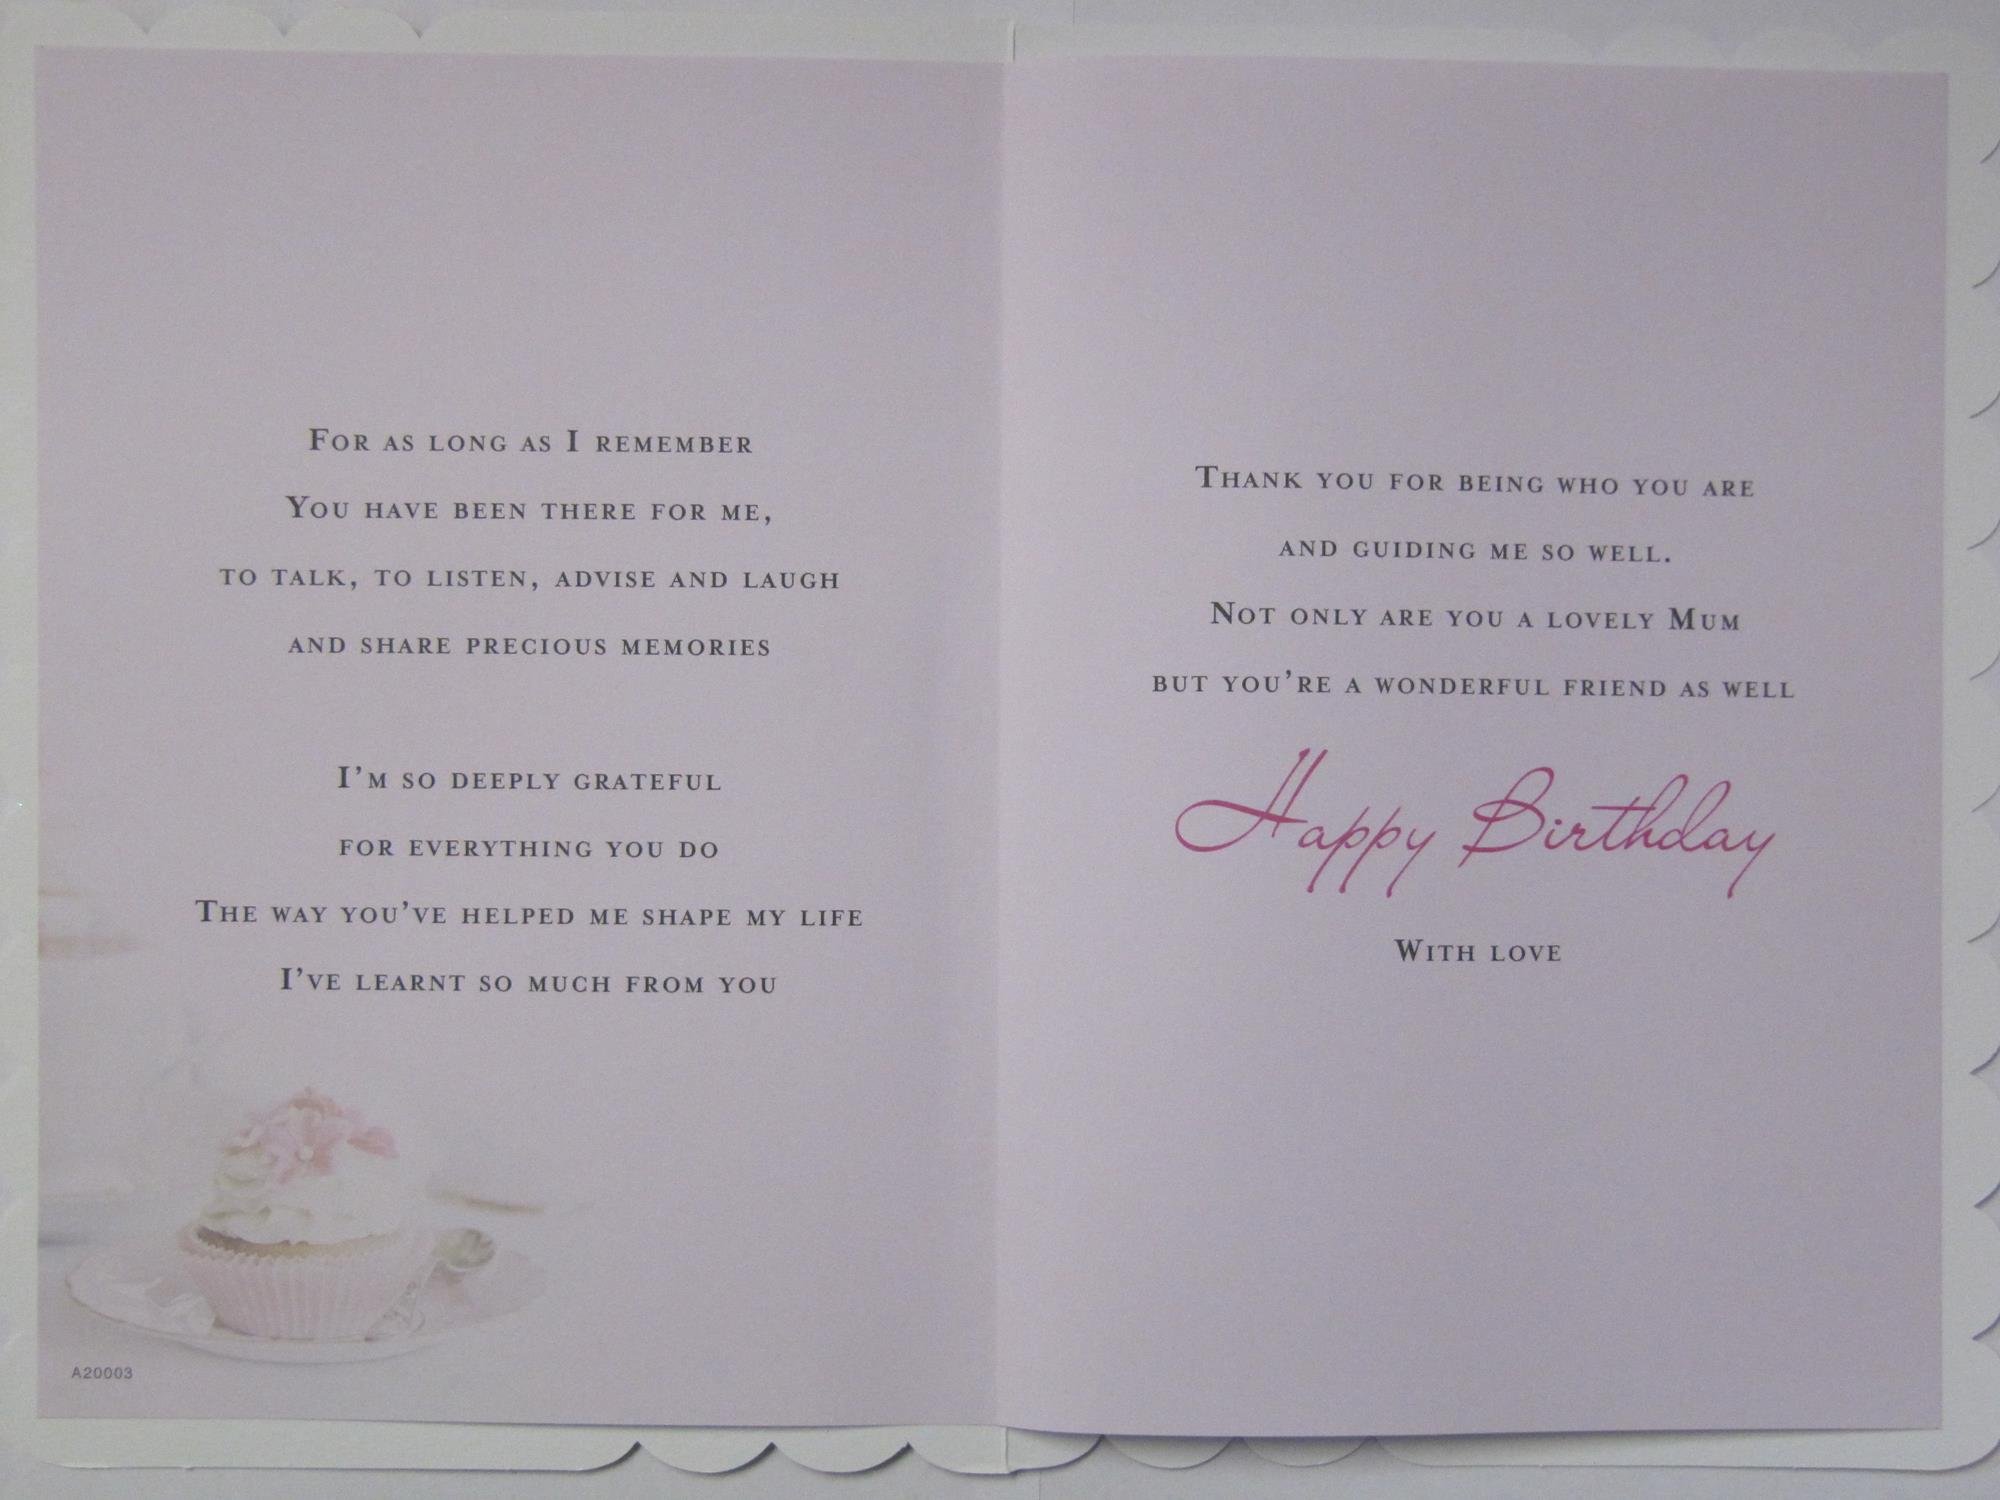 For as long as I remember
You have been there for me,
to talk, to listen, advise and laugh
and share precious memories
I'm so deeply grateful
for everything you do
The way you've helped me shape my life
I've learnt so much from you
A20003
Thank you for being who you are
and guiding me so well.
Not only are you a lovely Mum
but you're a wonderful friend as well
Happy Birthday
With love